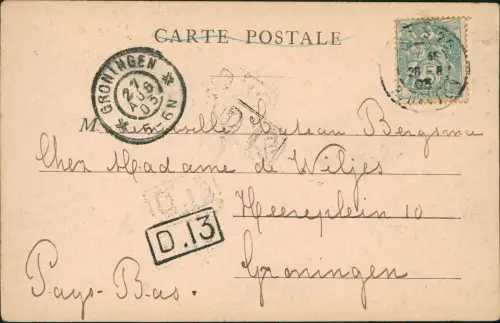 CARTE POSTALE
GRONINGEN
27 AUG 03
5-6N
Mademoiselle Bergsma
Chez Madame de Wiljes
Heereplein 10
D.13
D.13
Groningen
Pays-Bas.